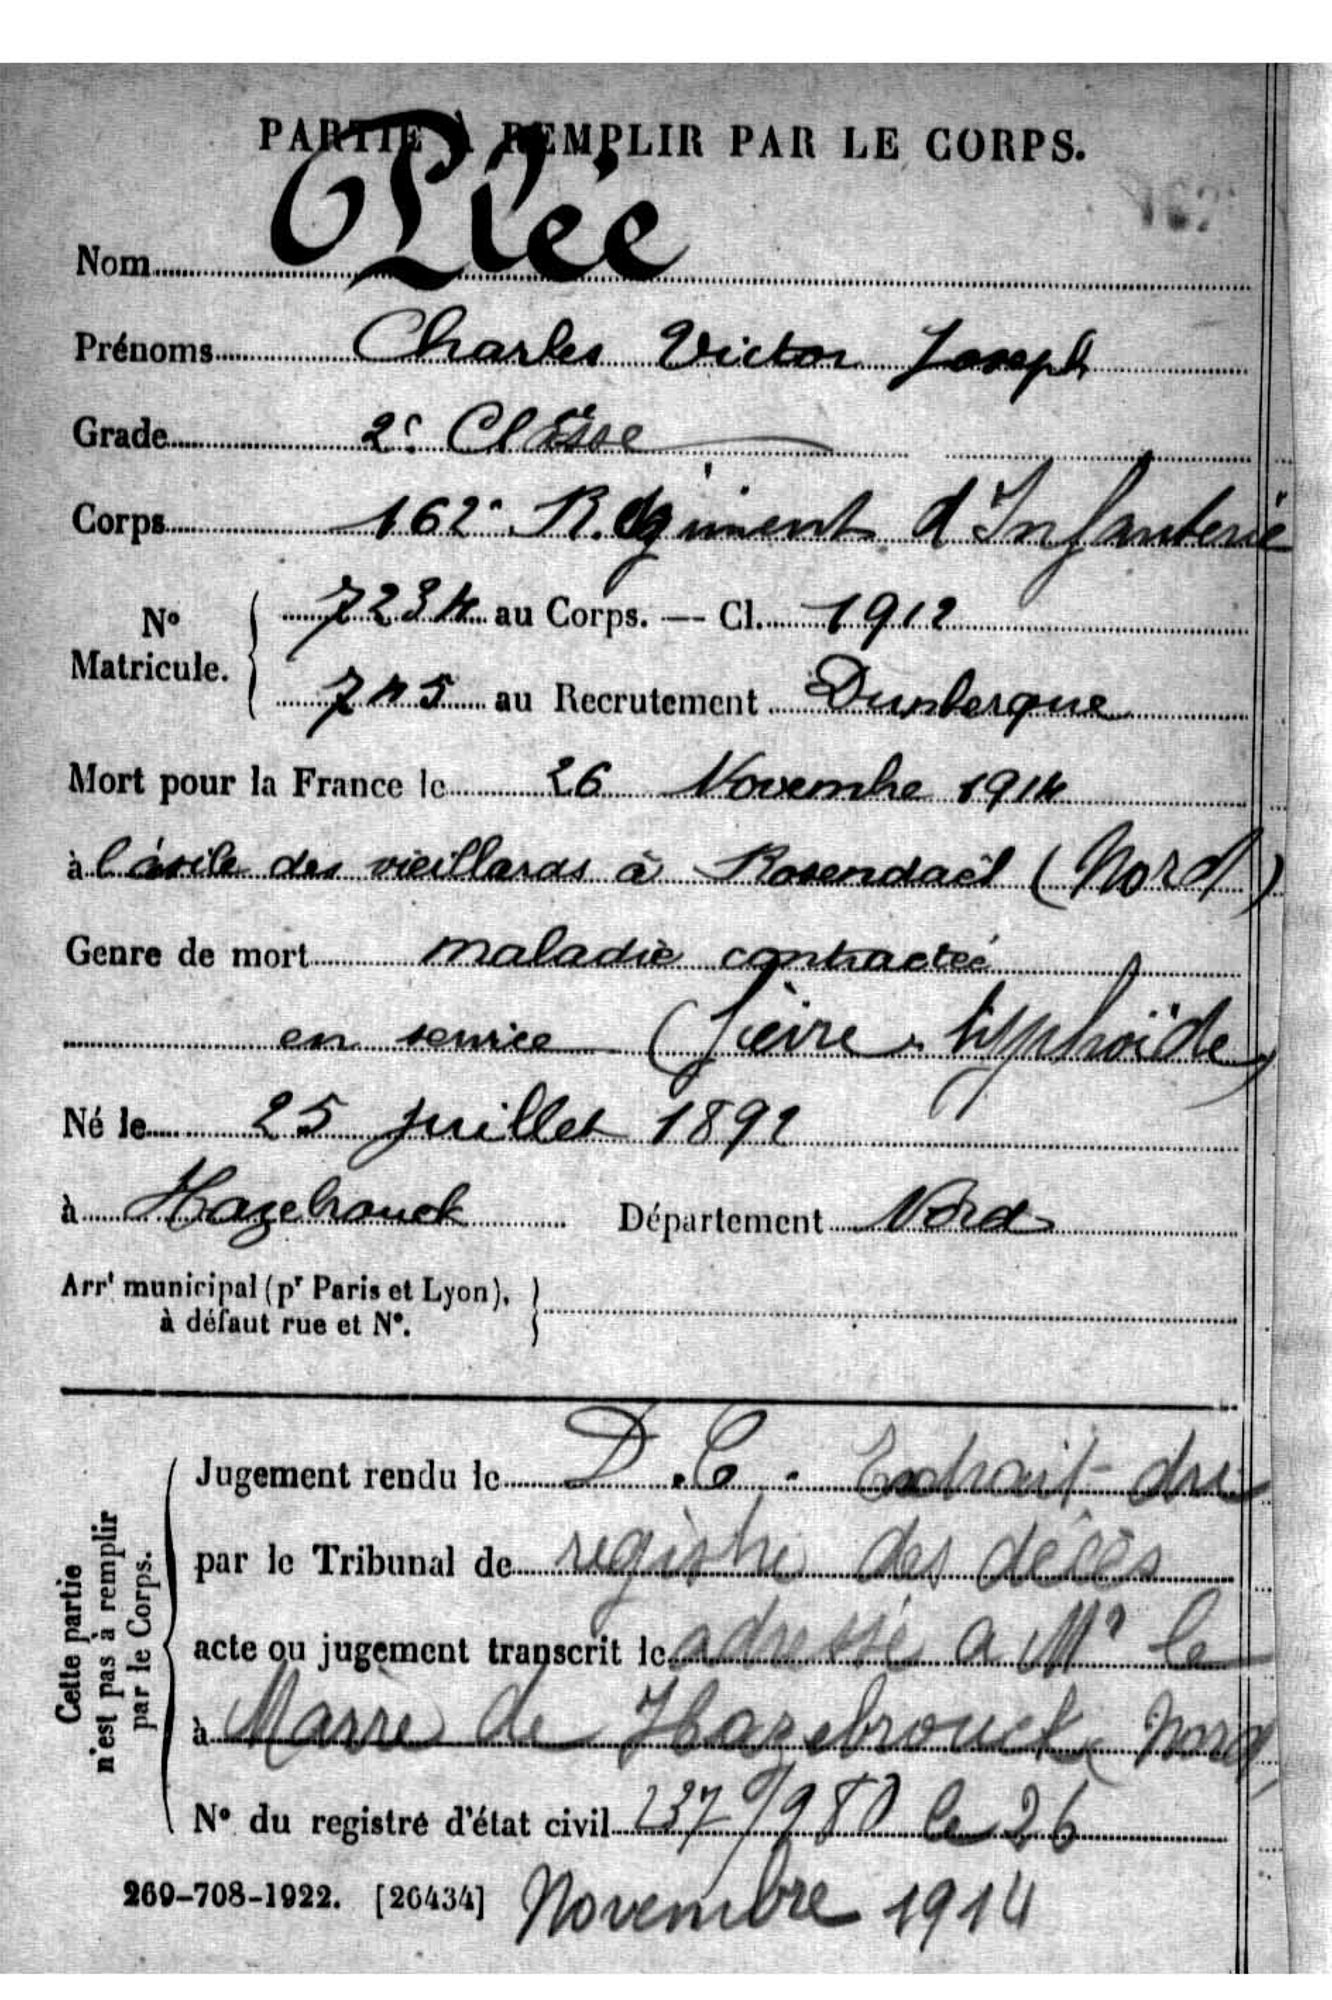 PARTIE À REMPLIR PAR LE CORPS.
Nom Plée
Prénoms Charles Victor Joseph
Grade 2e Classe
Corps 162e Régiment d'Infanterie
No Matricule. 7234 au Corps. — Cl. 1912
745 au Recrutement Dunkerque
Mort pour la France le 26 Novembre 1914
à l'asile des vieillards à Rosendaël (Nord)
Genre de mort maladie contractée
en service (fièvre typhoïde)
Né le 25 juillet 1892
à Hazebrouck Département Nord
Arrt municipal (pr Paris et Lyon),
à défaut rue et No.
Cette partie
n'est pas à remplir
par le Corps.
Jugement rendu le D.C. Extrait du
par le Tribunal de registre des décès
acte ou jugement transcrit le adressé a Mr le
à Maire de Hazebrouck Nord
No du registre d'état civil 237 le 26
269-708-1922. [26434] Novembre 1914